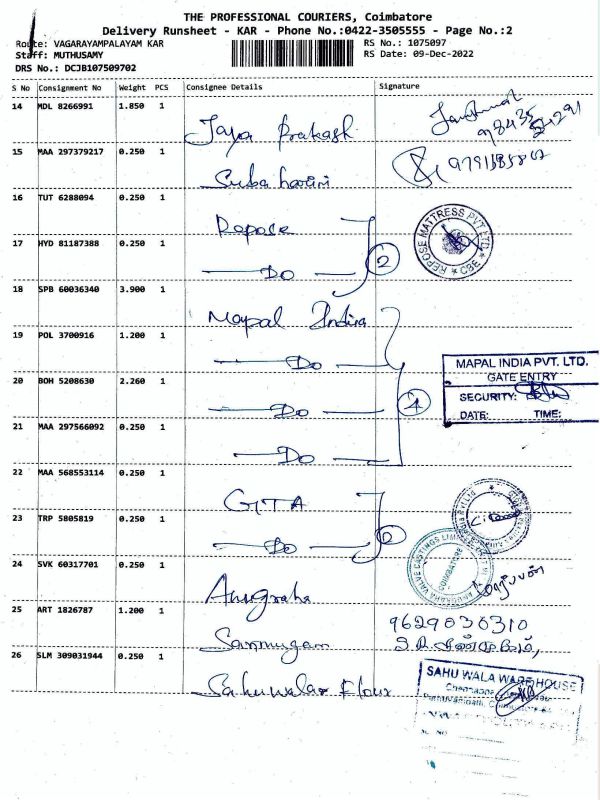 THE PROFESSIONAL COURIERS, Coimbatore
Delivery Runsheet - KAR - Phone No.:0422-3505555 - Page No.:2
Route: VAGARAYAMPALAYAM KAR
RS No.: 1075097
Staff: MUTHUSAMY
RS Date: 09-Dec-2022
DRS No.: DCJB107509702
S No Consignment No Weight PCS Consignee Details Signature
14 MDL 8266991 1.850 1 Jaya Prakash
15 MAA 297379217 0.250 1 Suba harini
16 TUT 6288094 0.250 1 Repose
REPOSE MATTRESS PVT LTD. CBE
17 HYD 81187388 0.250 1 Do 2
18 SPB 60036340 3.900 1 Mapal India
19 POL 3700916 1.200 1 Do
MAPAL INDIA PVT. LTD.
GATE ENTRY
20 BOH 5208630 2.260 1 Do 4
SECURITY:
DATE: TIME:
21 MAA 297566092 0.250 1 Do
22 MAA 568553114 0.250 1 GITA
23 TRP 5805819 0.250 1 Do
COIMBATORE
24 SVK 60317701 0.250 1 Anugraha
25 ART 1826787 1.200 1 Sanmugam 9629030310
26 SLM 309031944 0.250 1 Sahuwalaz Flour
SAHU WALA WAREHOUSE